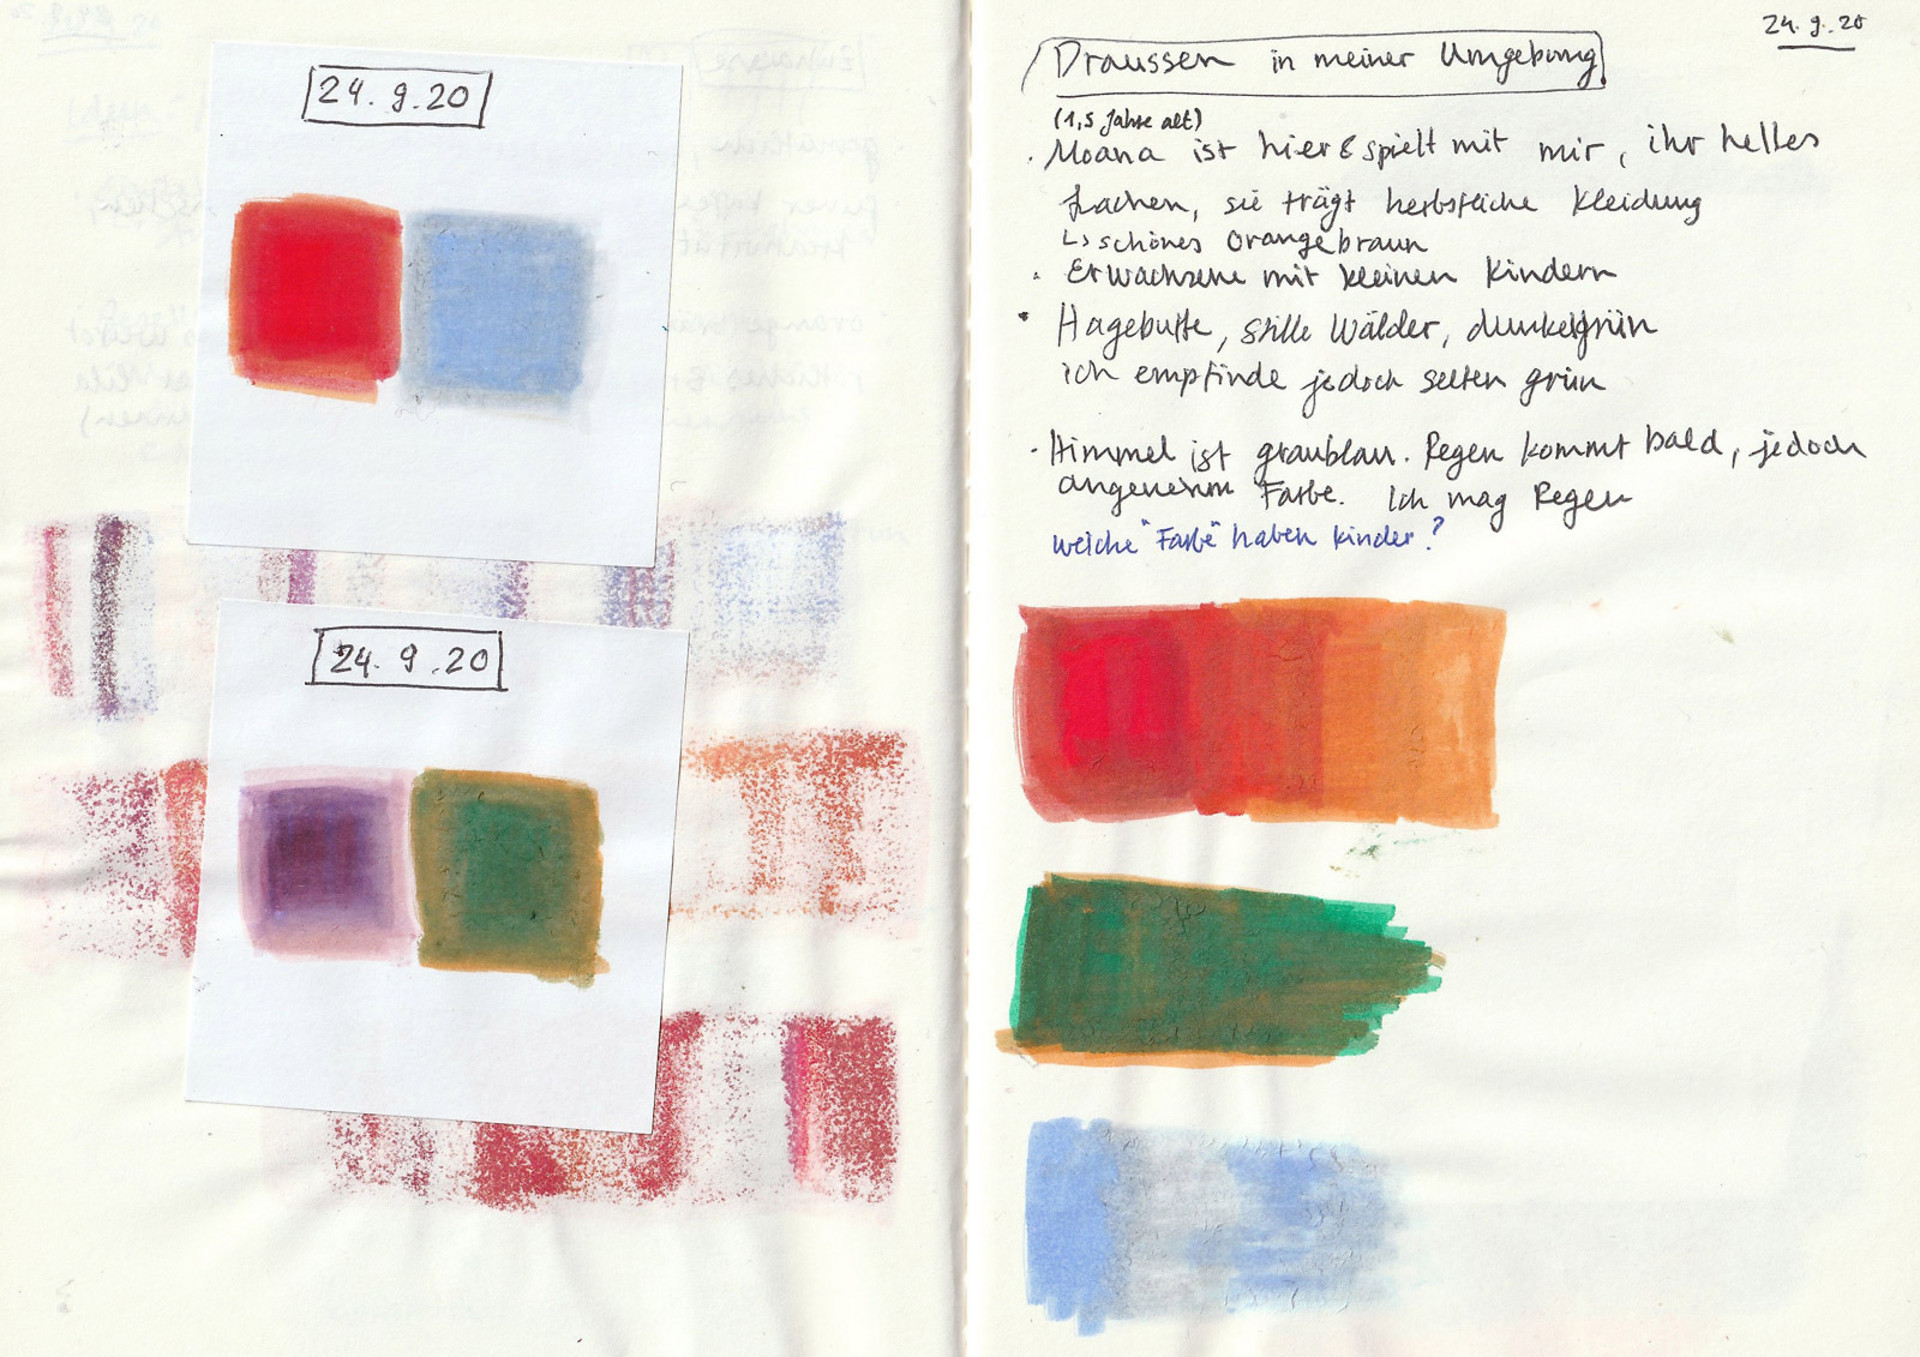 24.9.20
24.9.20
24.9.20
Draussen in meiner Umgebung
(1,5 Jahre alt)
· Moana ist hier & spielt mit mir, ihr helles
Lachen, sie trägt herbstliche Kleidung
↳ schönes Orangebraun
· Erwachsene mit kleinen Kindern
· Hagebutte, stille Wälder, dunkelgrün
ich empfinde jedoch selten grün
· Himmel ist graublau. Regen kommt bald, jedoch
angenehm Farbe. Ich mag Regen
welche "Farbe" haben kinder?